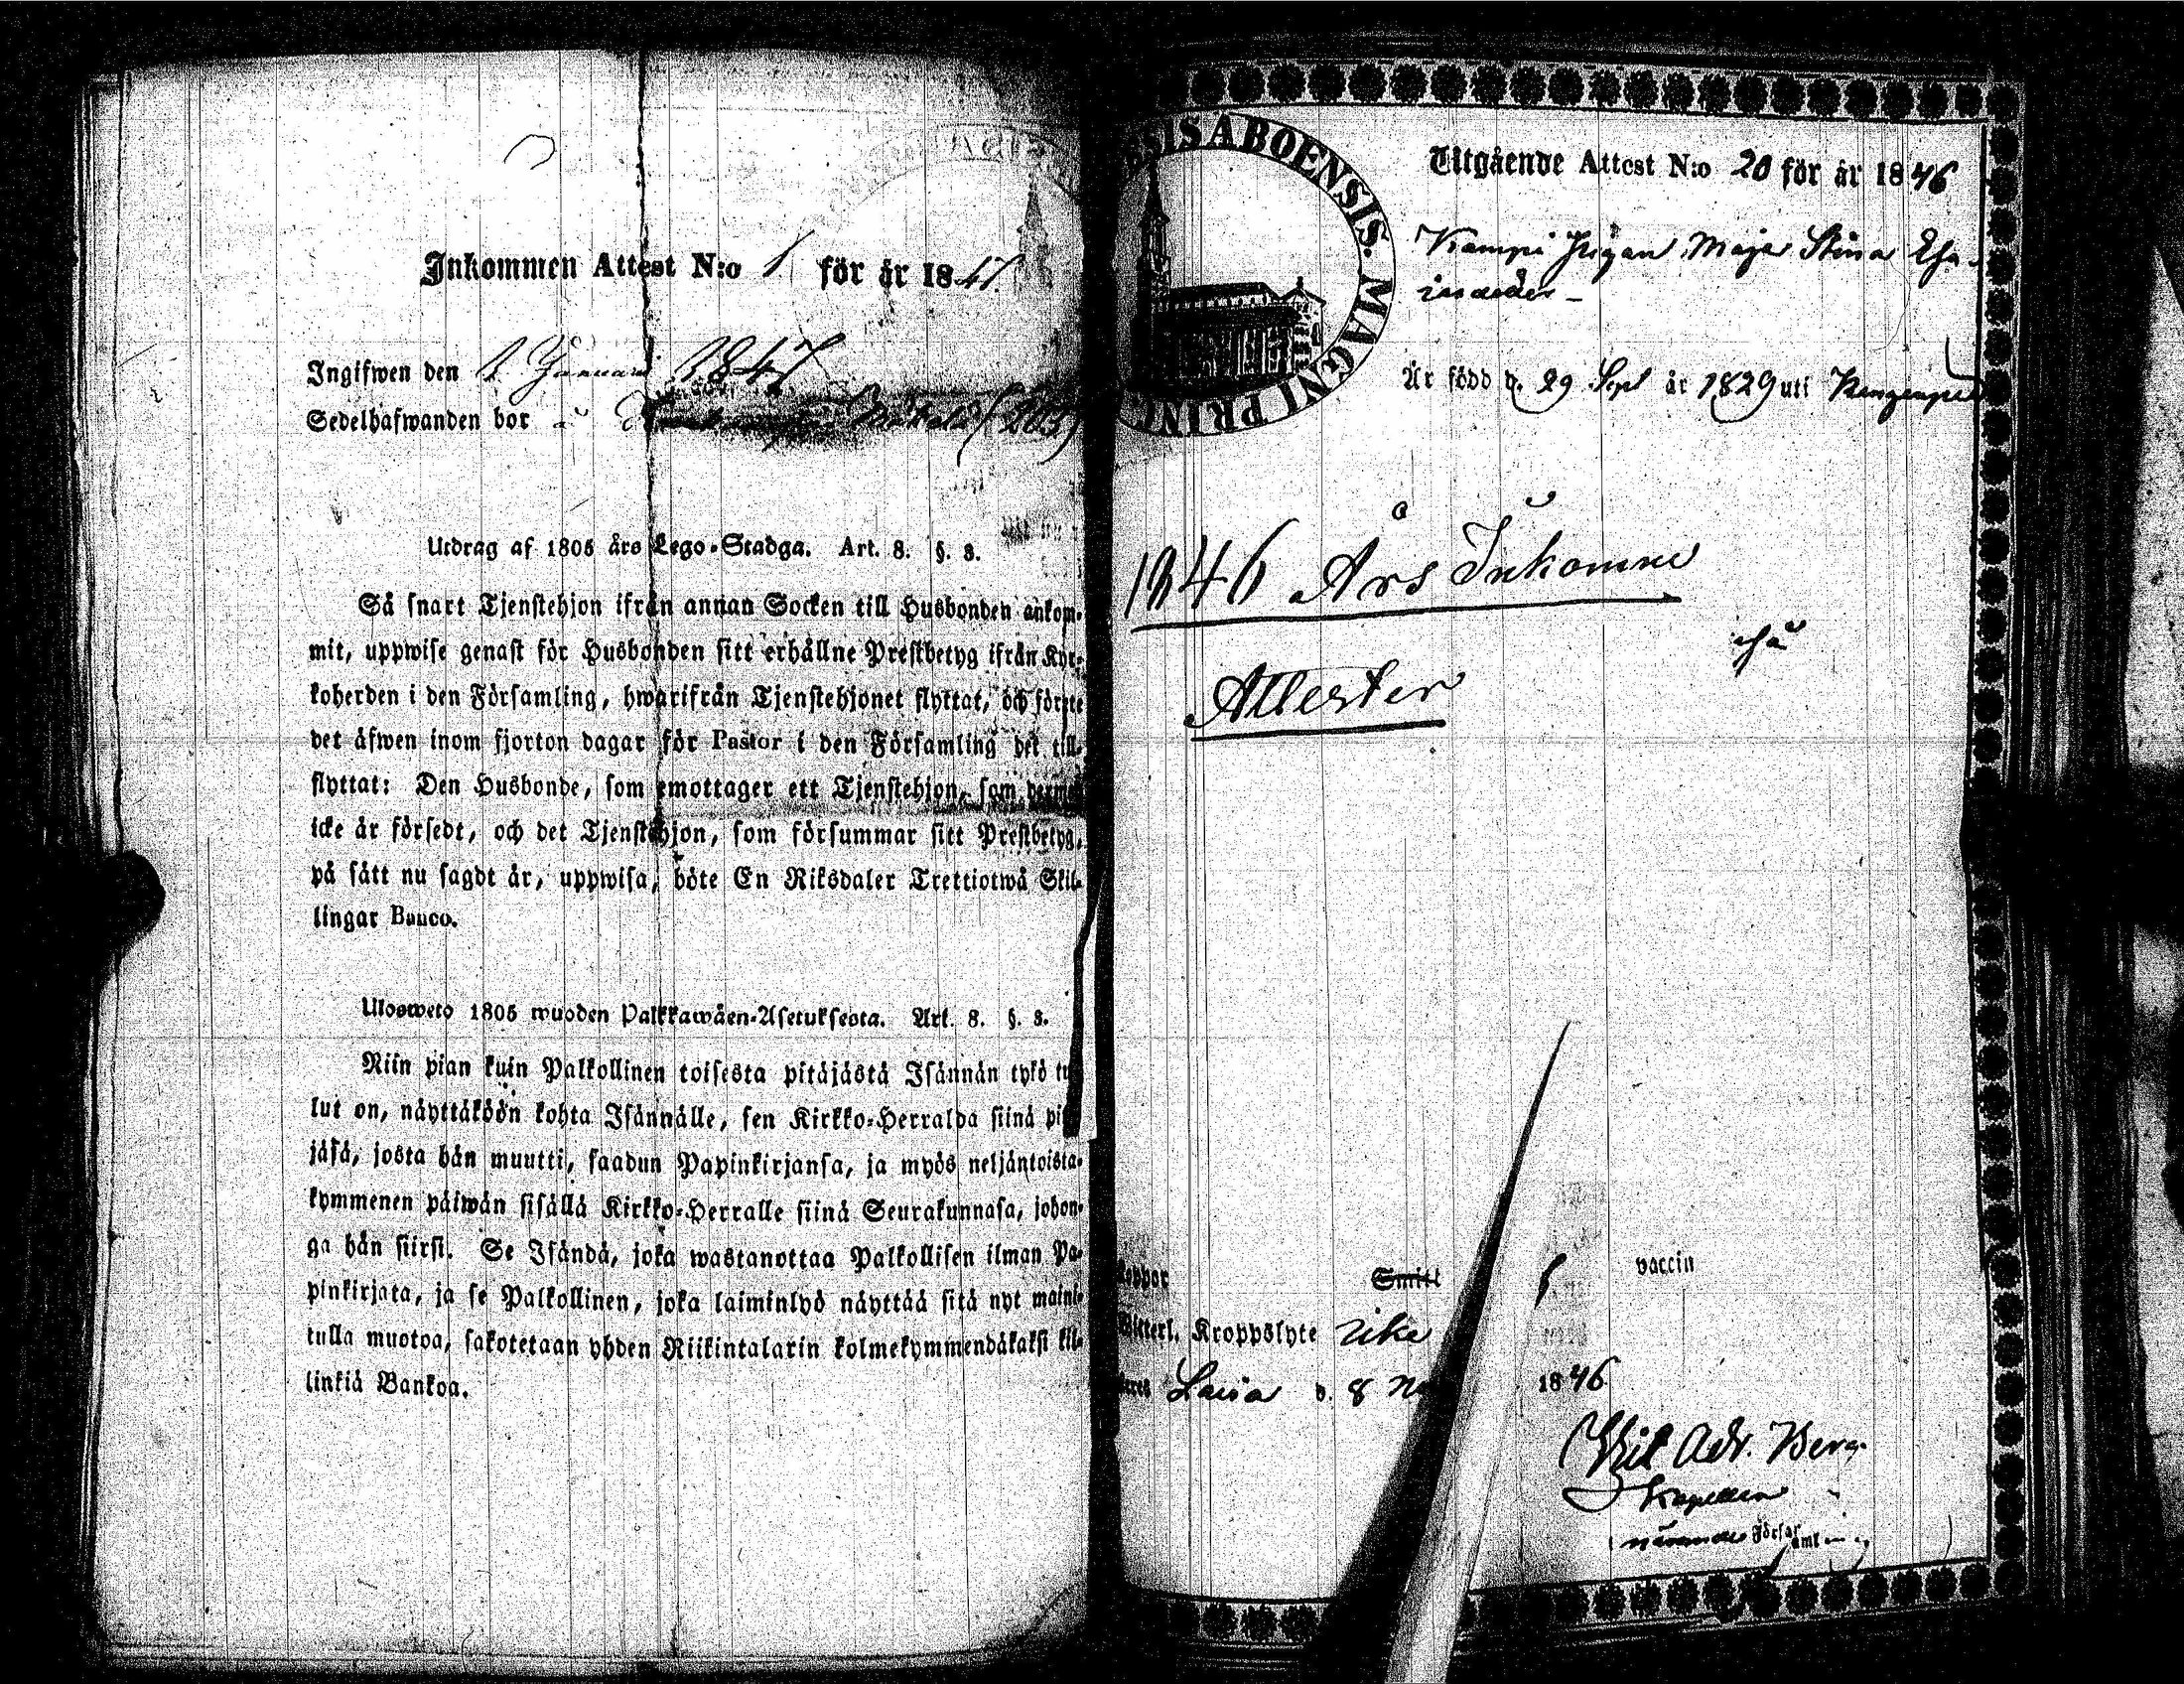 Inkommen Attest N:o 1 för år 1847.
Ingifwen den 1 Januari 1847
Sedelhafwanden bor
Utdrag af 1805 års Lego-Stadga. Art. 8. §. 3.
Så snart Tjenstehjon ifrån annan Socken till Husbonden ankom-
mit, uppwise genast för Husbonden sitt erhållne Prestbetyg ifrån Kyr-
koherden i den Församling, hwarifrån Tjenstehjonet flyttat, och förete
det äfwen inom fjorton dagar för Pastor i den Församling det till-
flyttat: Den Husbonde, som emottager ett Tjenstehjon, som dermed
icke är försedt, och det Tjenstehjon, som försummar sitt Prestbetyg,
på sätt nu sagdt är, uppwisa, böte En Riksdaler Trettiotwå Skil-
lingar Banco.
Ulosweto 1805 wuoden Palkkawäen-Asetuksesta. Art. 8. §. 3.
Niin pian kuin Palkollinen toisesta pitäjästä Isännän tykö tu
lut on, näyttäköön kohta Isännälle, sen Kirkko-Herralda siinä pi
jäsä, josta hän muutti, saadun Papinkirjansa, ja myös neljäntoista-
kymmenen päiwän sisällä Kirkko-Herralle siinä Seurakunnasa, johon-
ga hän siirsi. Se Isändä, joka wastanottaa Palkollisen ilman Pa-
pinkirjata, ja se Palkollinen, joka laiminlyö näyttää sitä nyt maini-
tulla muotoa, sakotetaan yhden Riikintalarin kolmekymmendäkaksi kil-
linkiä Bankoa.
SIS ABOENSIS. MAGNI PRINC
Utgående Attest N:o 20 för år 1846
Kampi Pigan Maja Stina Esa-
iasdoter
Är född d. 29 Sept år 1829 uti
1846 Års Inkomne
Attester
Koppor Smitt vaccin
Witterl. Kroppslyte icke
Lavia d. 8 No 1846
Adr. Berg
Kapellan
Församl